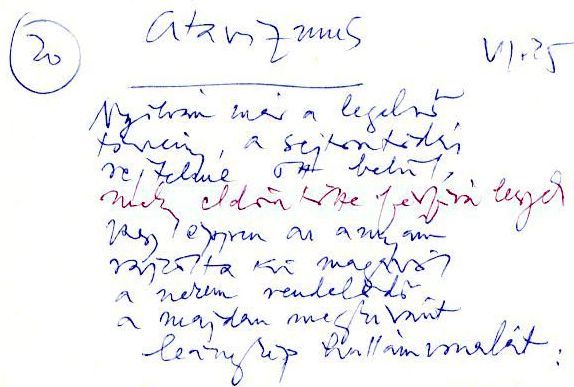 20
Atavizmus
VI. 25
Nyilván már a legelső
törvény, a sejtosztódás
rejtelme ott belül,
mely eldöntötte férfivá legyek
vagy éppen az anyám
rajzolta ki magából
a nekem rendelődő
a majdan megkívánt
leánykép hullámvonalát.